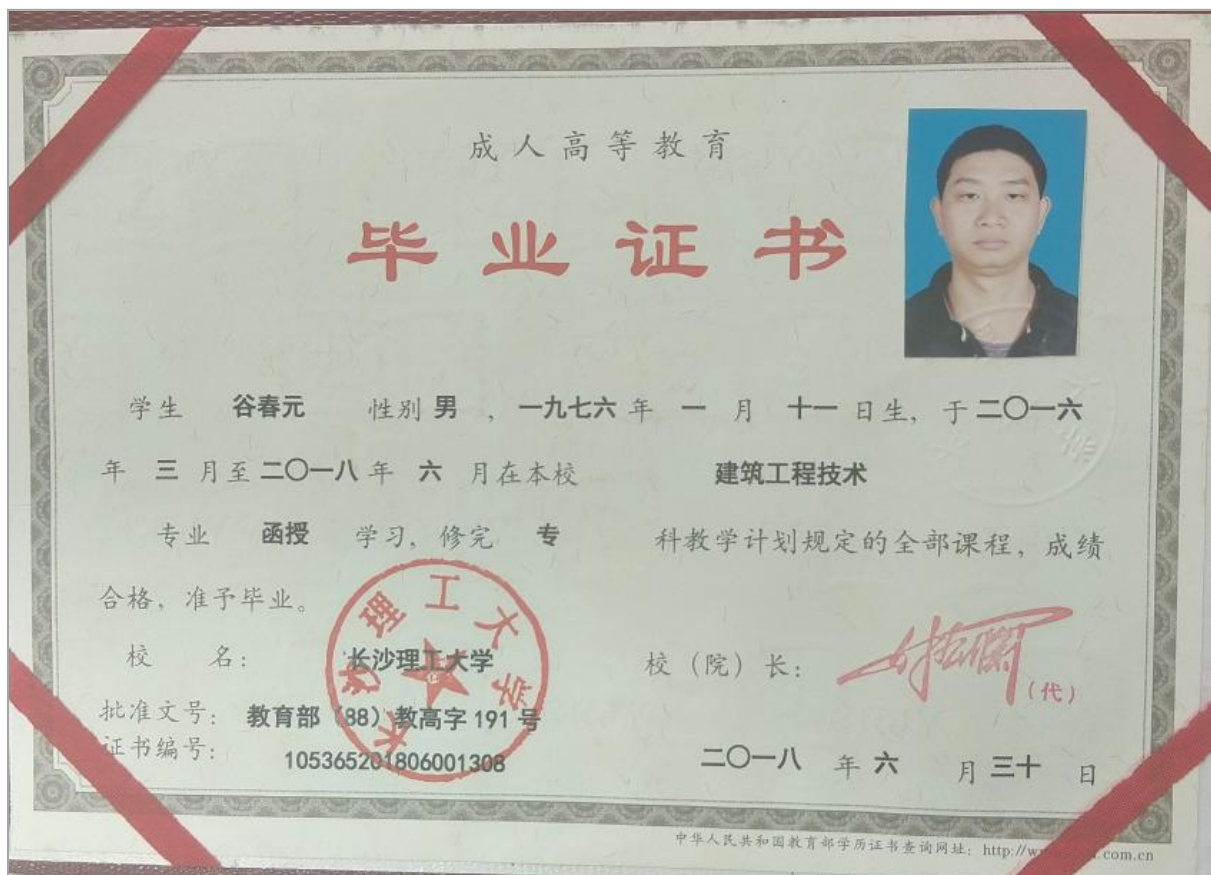 成人高等教育
毕业证书
学生 谷春元 性别 男 ，一九七六 年 一 月 十一 日生，于 二〇一六
年 三 月至 二〇一八 年 六 月在本校 建筑工程技术
专业 函授 学习，修完 专 科教学计划规定的全部课程，成绩
合格，准予毕业。
校 名： 长沙理工大学 校（院）长：
（代）
批准文号： 教育部（88）教高字 191 号
证书编号： 105365201806001308
二〇一八 年 六 月 三十 日
长沙理工大学
中华人民共和国教育部学历证书查询网址：http://w .com.cn